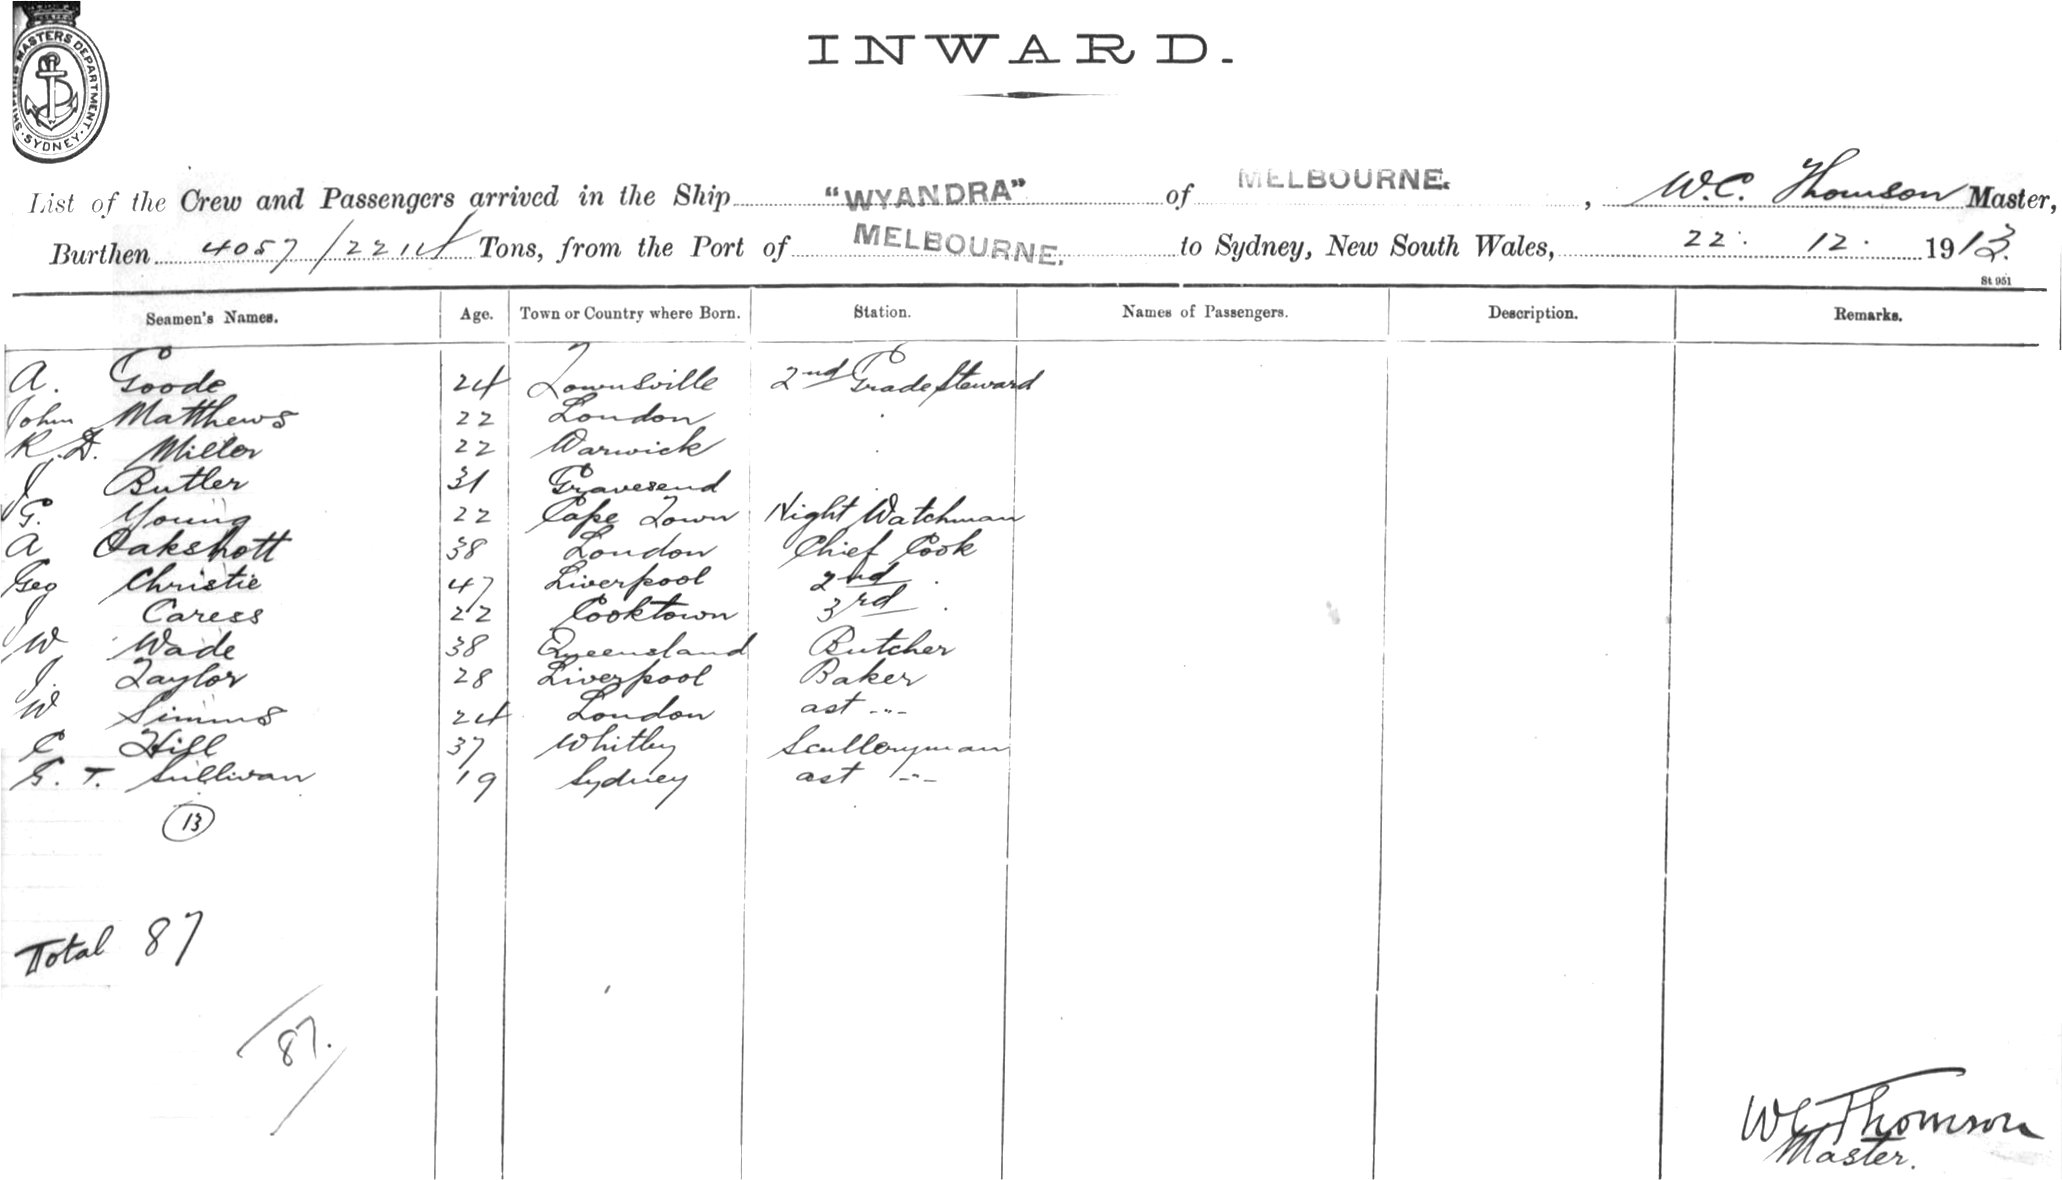 SHIPPING MASTERS DEPARTMENT
· SYDNEY ·
INWARD.
List of the Crew and Passengers arrived in the Ship "WYANDRA" of MELBOURNE. , W.C. Thomson Master,
Burthen 4057/2214 Tons, from the Port of MELBOURNE. to Sydney, New South Wales, 22. 12. 1913.
St 951
Seamen's Names. Age. Town or Country where Born. Station. Names of Passengers. Description. Remarks.
A. Goode 24 Townsville 2nd Grade Steward
John Matthews 22 London .
R.D. Miller 22 Warwick .
J Butler 31 Gravesend
G. Young 22 Cape Town Night Watchman
A Oakshott 38 London Chief Cook
Geo Christie 47 Liverpool 2nd .
J Caress 22 Cooktown 3rd .
W Wade 38 Queensland Butcher
J. Taylor 28 Liverpool Baker
W Simms 24 London ast -"-
C Hill 37 Whitby Sculleryman
G. T. Sullivan 19 Sydney ast -"-
13
Total 87
87.
WC Thomson
Master.